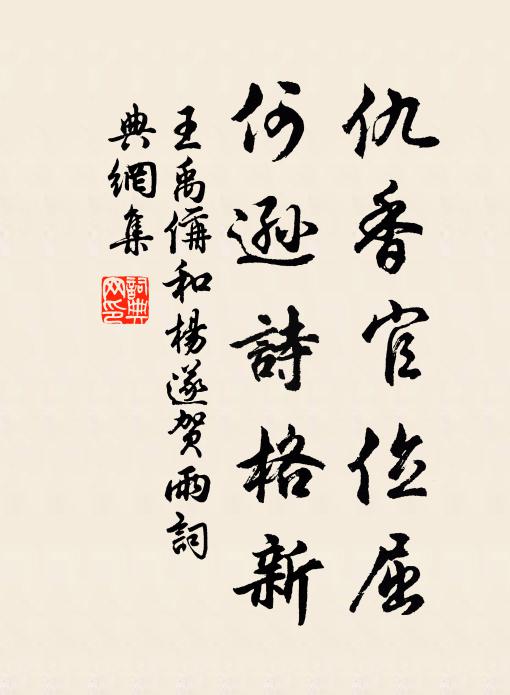 仇香官位屈
何遜詩格新
王禹偁和楊遂贺雨詞
典網集
詞典
网印